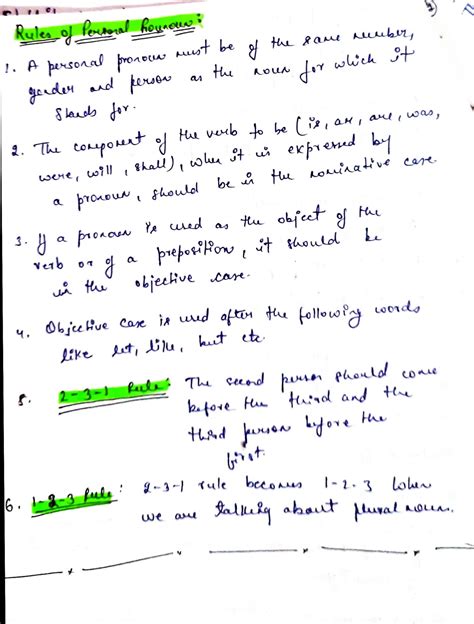 Rules of Personal Pronoun:
1. A personal pronoun must be of the same number,
gender and person as the noun for which it
stands for.
2. The component of the verb to be (is, am, are, was,
were, will, shall), when it is expressed by
a pronoun, should be in the nominative case.
3. If a pronoun is used as the object of the
verb or of a preposition, it should be
in the objective case.
4. Objective case is used after the following words
like let, like, but etc.
5. 2-3-1 Rule: The second person should come
before the third and the
third person before the
first.
6. 1-2-3 Rule: 2-3-1 rule becomes 1-2-3 when
we are talking about plural noun.